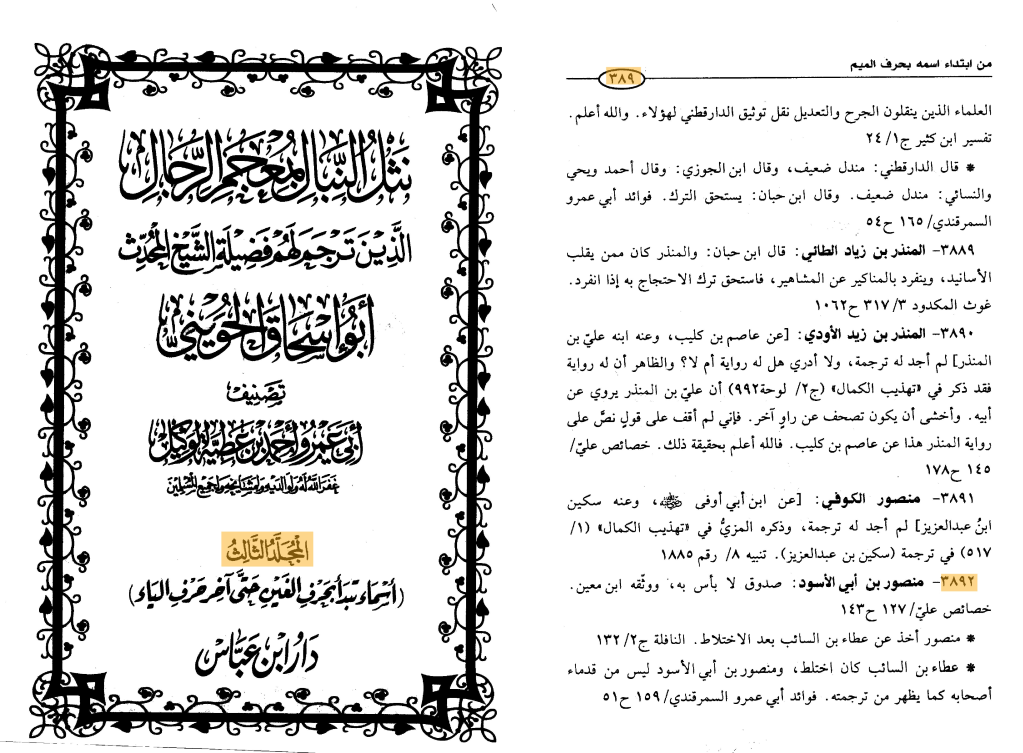 من ابتداء اسمه بحرف الميم
٣٨٩
العلماء الذين ينقلون الجرح والتعديل نقل توثيق الدارقطني لهؤلاء. والله أعلم.
تفسير ابن كثير ج١/ ٢٤
* قال الدارقطني: مندل ضعيف، وقال ابن الجوزي: وقال أحمد ويحي
والنسائي: مندل ضعيف. وقال ابن حبان: يستحق الترك. فوائد أبي عمرو
السمرقندي/ ١٦٥ ح٥٤
٣٨٨٩- المنذر بن زياد الطائي: قال ابن حبان: والمنذر كان ممن يقلب
الأسانيد، وينفرد بالمناكير عن المشاهير، فاستحق ترك الاحتجاج به إذا انفرد.
غوث المكدود ٣/ ٣١٧ ح١٠٦٢
٣٨٩٠- المنذر بن زيد الأودي: [عن عاصم بن كليب، وعنه ابنه عليّ بن
المنذر] لم أجد له ترجمة، ولا أدري هل له رواية أم لا؟ والظاهر أن له رواية
فقد ذكر في «تهذيب الكمال» (ج٢/ لوحة٩٩٢) أن عليّ بن المنذر يروي عن
أبيه. وأخشى أن يكون تصحف عن راوٍ آخر. فإني لم أقف على قولٍ نصَّ على
رواية المنذر هذا عن عاصم بن كليب. فالله أعلم بحقيقة ذلك. خصائص عليّ/
١٤٥ ح١٧٨
٣٨٩١- منصور الكوفي: [عن ابن أبي أوفى ﵁، وعنه سكين
ابنُ عبدالعزيز] لم أجد له ترجمة، وذكره المزيُّ في «تهذيب الكمال» (١/
٥١٧) في ترجمة (سكين بن عبدالعزيز). تنبيه ٨/ رقم ١٨٨٥
٣٨٩٢- منصور بن أبي الأسود: صدوق لا بأس به، ووثّقه ابن معين.
خصائص عليّ/ ١٢٧ ح١٤٣
* منصور أخذ عن عطاء بن السائب بعد الاختلاط. النافلة ج٢/ ١٣٢
* عطاء بن السائب كان اختلط، ومنصور بن أبي الأسود ليس من قدماء
أصحابه كما يظهر من ترجمته. فوائد أبي عمرو السمرقندي/ ١٥٩ ح٥١
نَثْلُ النِّبَالِ بِمُعْجَمِ الرِّجَالِ
الَّذِينَ تَرْجَمَ لَهُمْ فَضِيلَةُ الشَّيْخِ المُحَدِّث
أَبُو إِسْحَاقَ الحُوَيْنِيُّ
تَصْنِيفُ
أَبِي عَمْرٍو أَحْمَدَ بْنِ عَطِيَّةَ الوَكِيلِ
غَفَرَ اللهُ لَهُ وَلِوَالِدَيْهِ وَلِمَشَايِخِهِ وَلِجَمِيعِ المُسْلِمِينَ
المُجَلَّدُ الثَّالِثُ
(أَسْمَاء تَبْدَأُ بِحَرْفِ الغَيْنِ حَتَّى آخِرِ حَرْفِ اليَاءِ)
دَارُ ابْنِ عَبَّاس